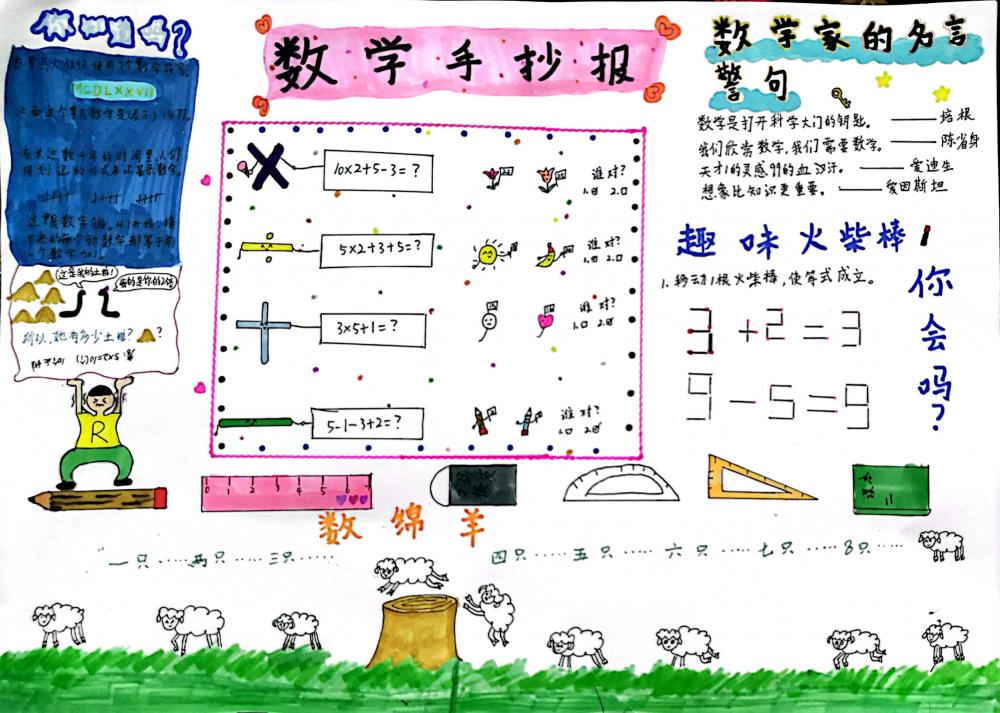 你知道吗?
古罗马人们只使用7个数字符号。
MCDLXXVII
上面这个罗马数字是表示了1477。
在长达数千年的时间里,人们
用划记的方式来记录数字。
这是我的土堆!
我的是你的2倍
所以,她有多少土堆? ?
R
数学手抄报
10x2+5-3=?
谁对?
1.□ 2.□
5x2+3+5=?
谁对?
1.□ 2.□
3x5+1=?
谁对?
1.□ 2.□
5-1-3+2=?
谁对?
数学家的名言
警句
数学是打开科学大门的钥匙。——培根
我们欣赏数学,我们需要数学。——陈省身
天才1的灵感99的血汗。——爱迪生
想象比知识更重要。——爱因斯坦
趣味火柴棒!
你会吗?
1.移动1根火柴棒,使等式成立。
3+2=3
9-5=9
0 1 2 3 4 5 6 7
数绵羊
一只······两只······三只······ 四只······五只······六只······七只······8只······